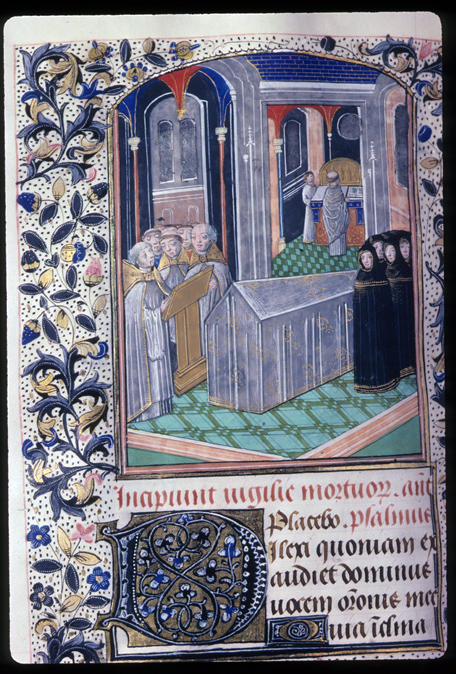 Incipiunt uigilie mortuoꝝ. ant
Placebo. psalmus
Dilexi quoniam ex
audiet dominus
uocem or̄onis mee
Quia īclina